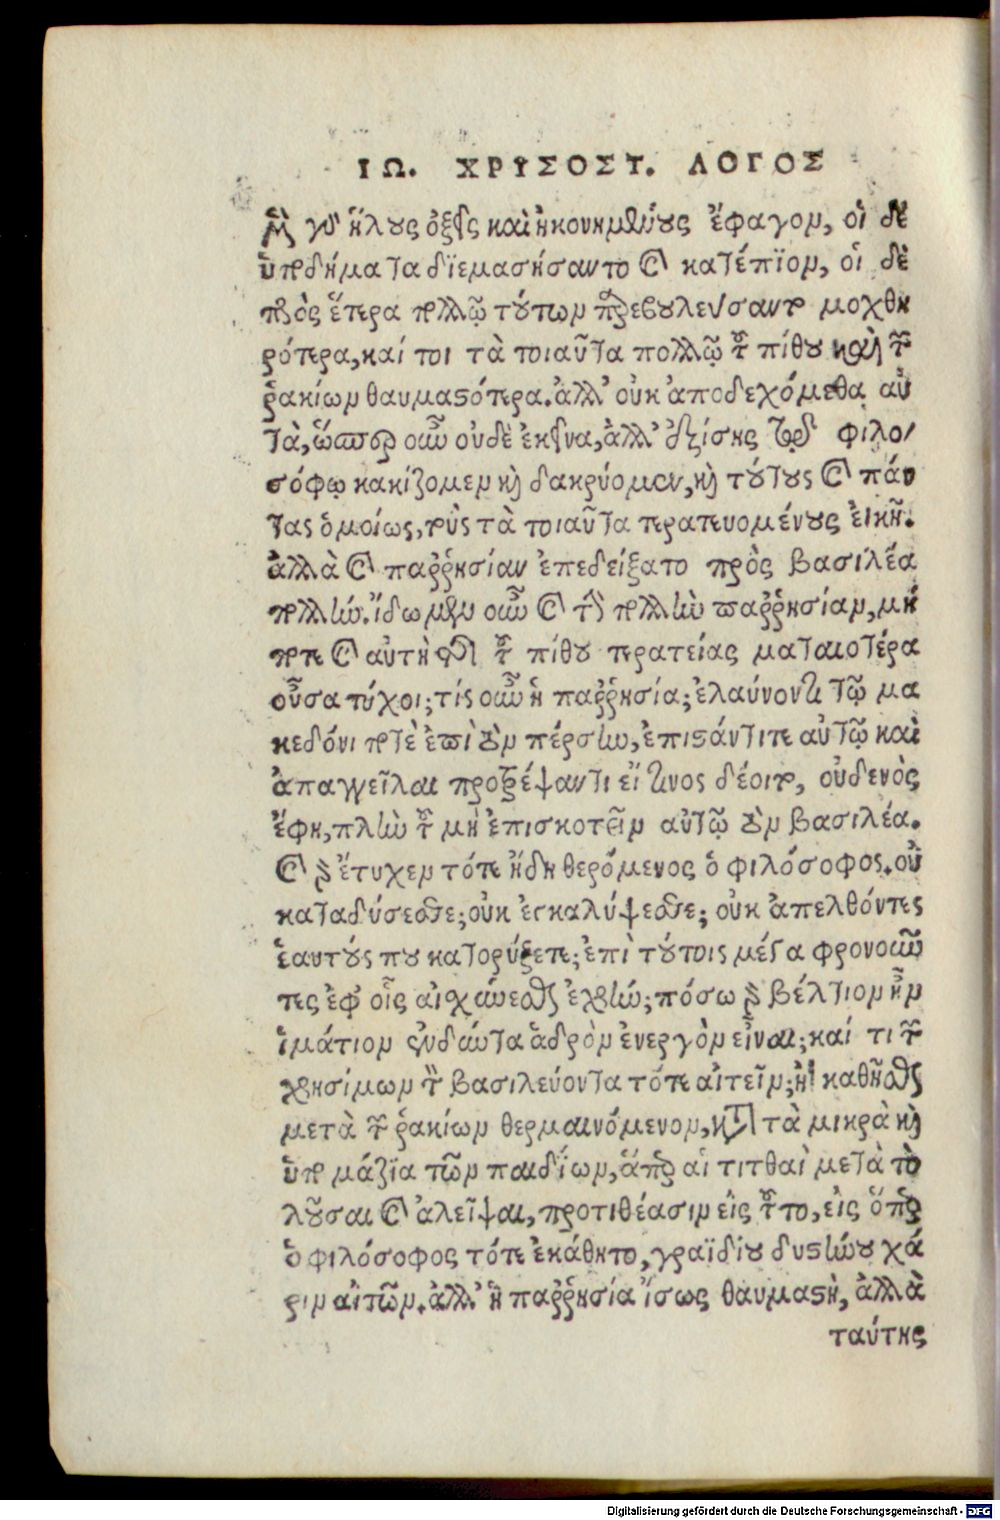 ΙΩ. ΧΡΥΣΟΣΤ. ΛΟΓΟΣ
μὲν γὰρ ἥλους ὀξεῖς καὶ ἠκονημένους ἔφαγον, οἱ δὲ
ὑποδήματα διεμασήσαντο καὶ κατέπιον, οἱ δὲ
πρὸς ἕτερα πολλῷ τούτων παρεβουλεύσαντο μοχθη
ρότερα, καί τοι τὰ τοιαῦτα πολλῷ τοῦ πίθου καὶ τῶν
ῥακίων θαυμαστότερα. ἀλλ' οὐκ ἀποδεχόμεθα αὐ
τὰ, ὥσπερ οὖν οὐδὲ ἐκεῖνα, ἀλλ' ἐξίσης τῷ φιλο/
σόφῳ κακίζομεν καὶ δακρύομεν, καὶ τούτους καὶ πάν
τας ὁμοίως, τοὺς τὰ τοιαῦτα τερατευομένους εἰκῆ.
ἀλλὰ καὶ παῤῥησίαν ἐπεδείξατο πρὸς βασιλέα
πολλήν. ἴδωμεν οὖν καὶ τὴν πολλὴν παῤῥησίαν, μή
ποτε καὶ αὐτὴ τῆς τοῦ πίθου τερατείας ματαιοτέρα
οὖσα τύχοι; τίς οὖν ἡ παῤῥησία; ἐλαύνοντι τῷ μα
κεδόνι ποτὲ ἐπὶ τὸν πέρσην, ἐπιστάντι τε αὐτῷ καὶ
ἀπαγγεῖλαι προτρέψαντι εἴ τινος δέοιτο, οὐδενὸς
ἔφη, πλὴν τοῦ μὴ ἐπισκοτεῖν αὐτῷ τὸν βασιλέα.
καὶ γὰρ ἔτυχεν τότε ἤδη θερόμενος ὁ φιλόσοφος. οὐ
καταδύσεσθε; οὐκ ἐγκαλύψεσθε; οὐκ ἀπελθόντες
ἑαυτούς που κατορύξετε; ἐπὶ τούτοις μέγα φρονοῦν
τες ἐφ' οἷς αἰσχύνεσθαι ἐχρῆν; πόσῳ γὰρ βέλτιον ἦν
ἱμάτιον ἐνδύντα ἁδρὸν ἐνεργὸν εἶναι; καί τι τῶν
χρησίμων τὸν βασιλεύοντα τότε αἰτεῖν; ἢ καθῆσθαι
μετὰ τῶν ῥακίων θερμαινόμενον, κατὰ τὰ μικρὰ καὶ
ὑπομάζια τῶν παιδίων, ἅπερ αἱ τιτθαὶ μετὰ τὸ
λοῦσαι καὶ ἀλεῖψαι, προτιθέασιν εἰς τοῦτο, εἰς ὅπερ
ὁ φιλόσοφος τότε ἐκάθητο, γραϊδίου δυστήνου χά
ριν αἰτῶν. ἀλλ' ἡ παῤῥησία ἴσως θαυμαστὴ, ἀλλὰ
ταύτης
Digitalisierung gefördert durch die Deutsche Forschungsgemeinschaft - DFG